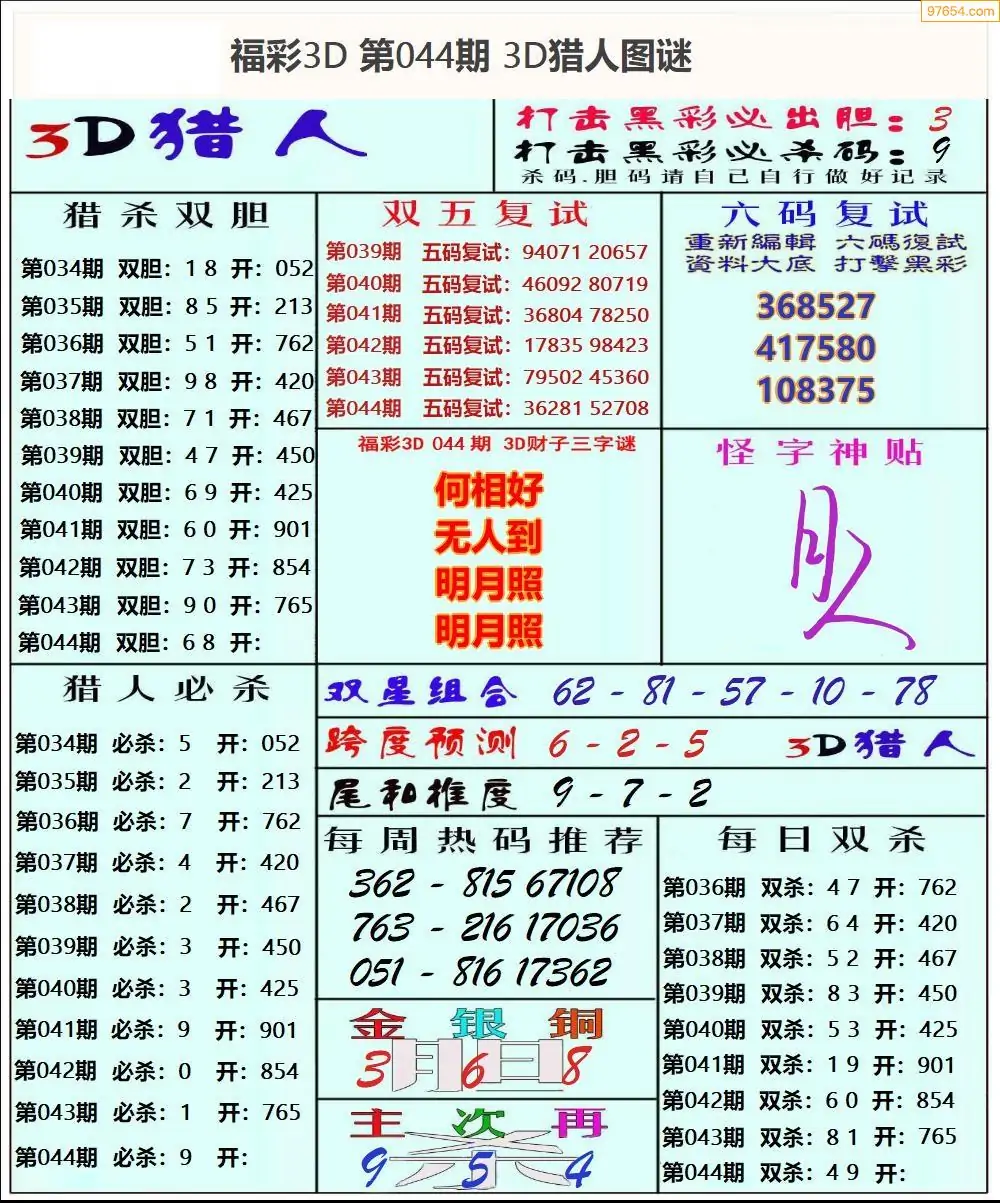 97654.com
福彩3D 第044期 3D猎人图谜
3D猎人
打击黑彩必出胆：3
打击黑彩必杀码：9
杀码.胆码请自己自行做好记录
猎杀双胆
第034期 双胆：1 8 开：052
第035期 双胆：8 5 开：213
第036期 双胆：5 1 开：762
第037期 双胆：9 8 开：420
第038期 双胆：7 1 开：467
第039期 双胆：4 7 开：450
第040期 双胆：6 9 开：425
第041期 双胆：6 0 开：901
第042期 双胆：7 3 开：854
第043期 双胆：9 0 开：765
第044期 双胆：6 8 开：
双五复试
第039期 五码复试：94071 20657
第040期 五码复试：46092 80719
第041期 五码复试：36804 78250
第042期 五码复试：17835 98423
第043期 五码复试：79502 45360
第044期 五码复试：36281 52708
六码复试
重新編輯 六碼復試
資料大底 打擊黑彩
368527
417580
108375
福彩3D 044 期 3D财子三字谜
何相好
无人到
明月照
明月照
怪字神贴
猎人必杀
第034期 必杀：5 开：052
第035期 必杀：2 开：213
第036期 必杀：7 开：762
第037期 必杀：4 开：420
第038期 必杀：2 开：467
第039期 必杀：3 开：450
第040期 必杀：3 开：425
第041期 必杀：9 开：901
第042期 必杀：0 开：854
第043期 必杀：1 开：765
第044期 必杀：9 开：
双星组合 62 - 81 - 57 - 10 - 78
跨度预测 6 - 2 - 5 3D猎人
尾和推度 9 - 7 - 2
每周热码推荐
362 - 815 67108
763 - 216 17036
051 - 816 17362
金 银 铜
胆
3 6 8
主 次 再
杀
9 5 4
每日双杀
第036期 双杀：4 7 开：762
第037期 双杀：6 4 开：420
第038期 双杀：5 2 开：467
第039期 双杀：8 3 开：450
第040期 双杀：5 3 开：425
第041期 双杀：1 9 开：901
第042期 双杀：6 0 开：854
第043期 双杀：8 1 开：765
第044期 双杀：4 9 开：